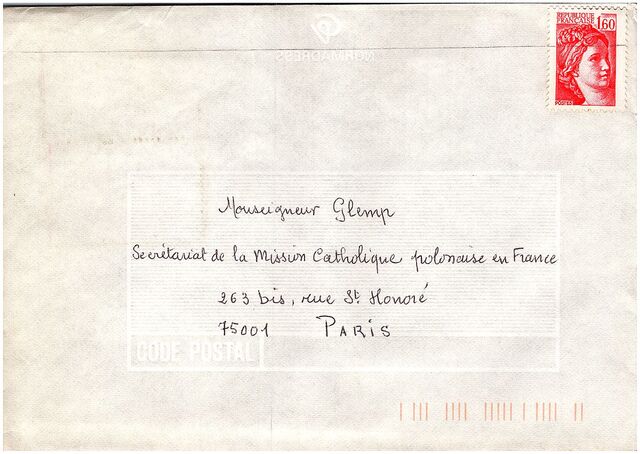 REPUBLIQUE
FRANCAISE 1,60
POSTES
Monseigneur Glemp
Secrétariat de la Mission Catholique polonaise en France
263 bis, rue St. Honoré
75001 PARIS
CODE POSTAL